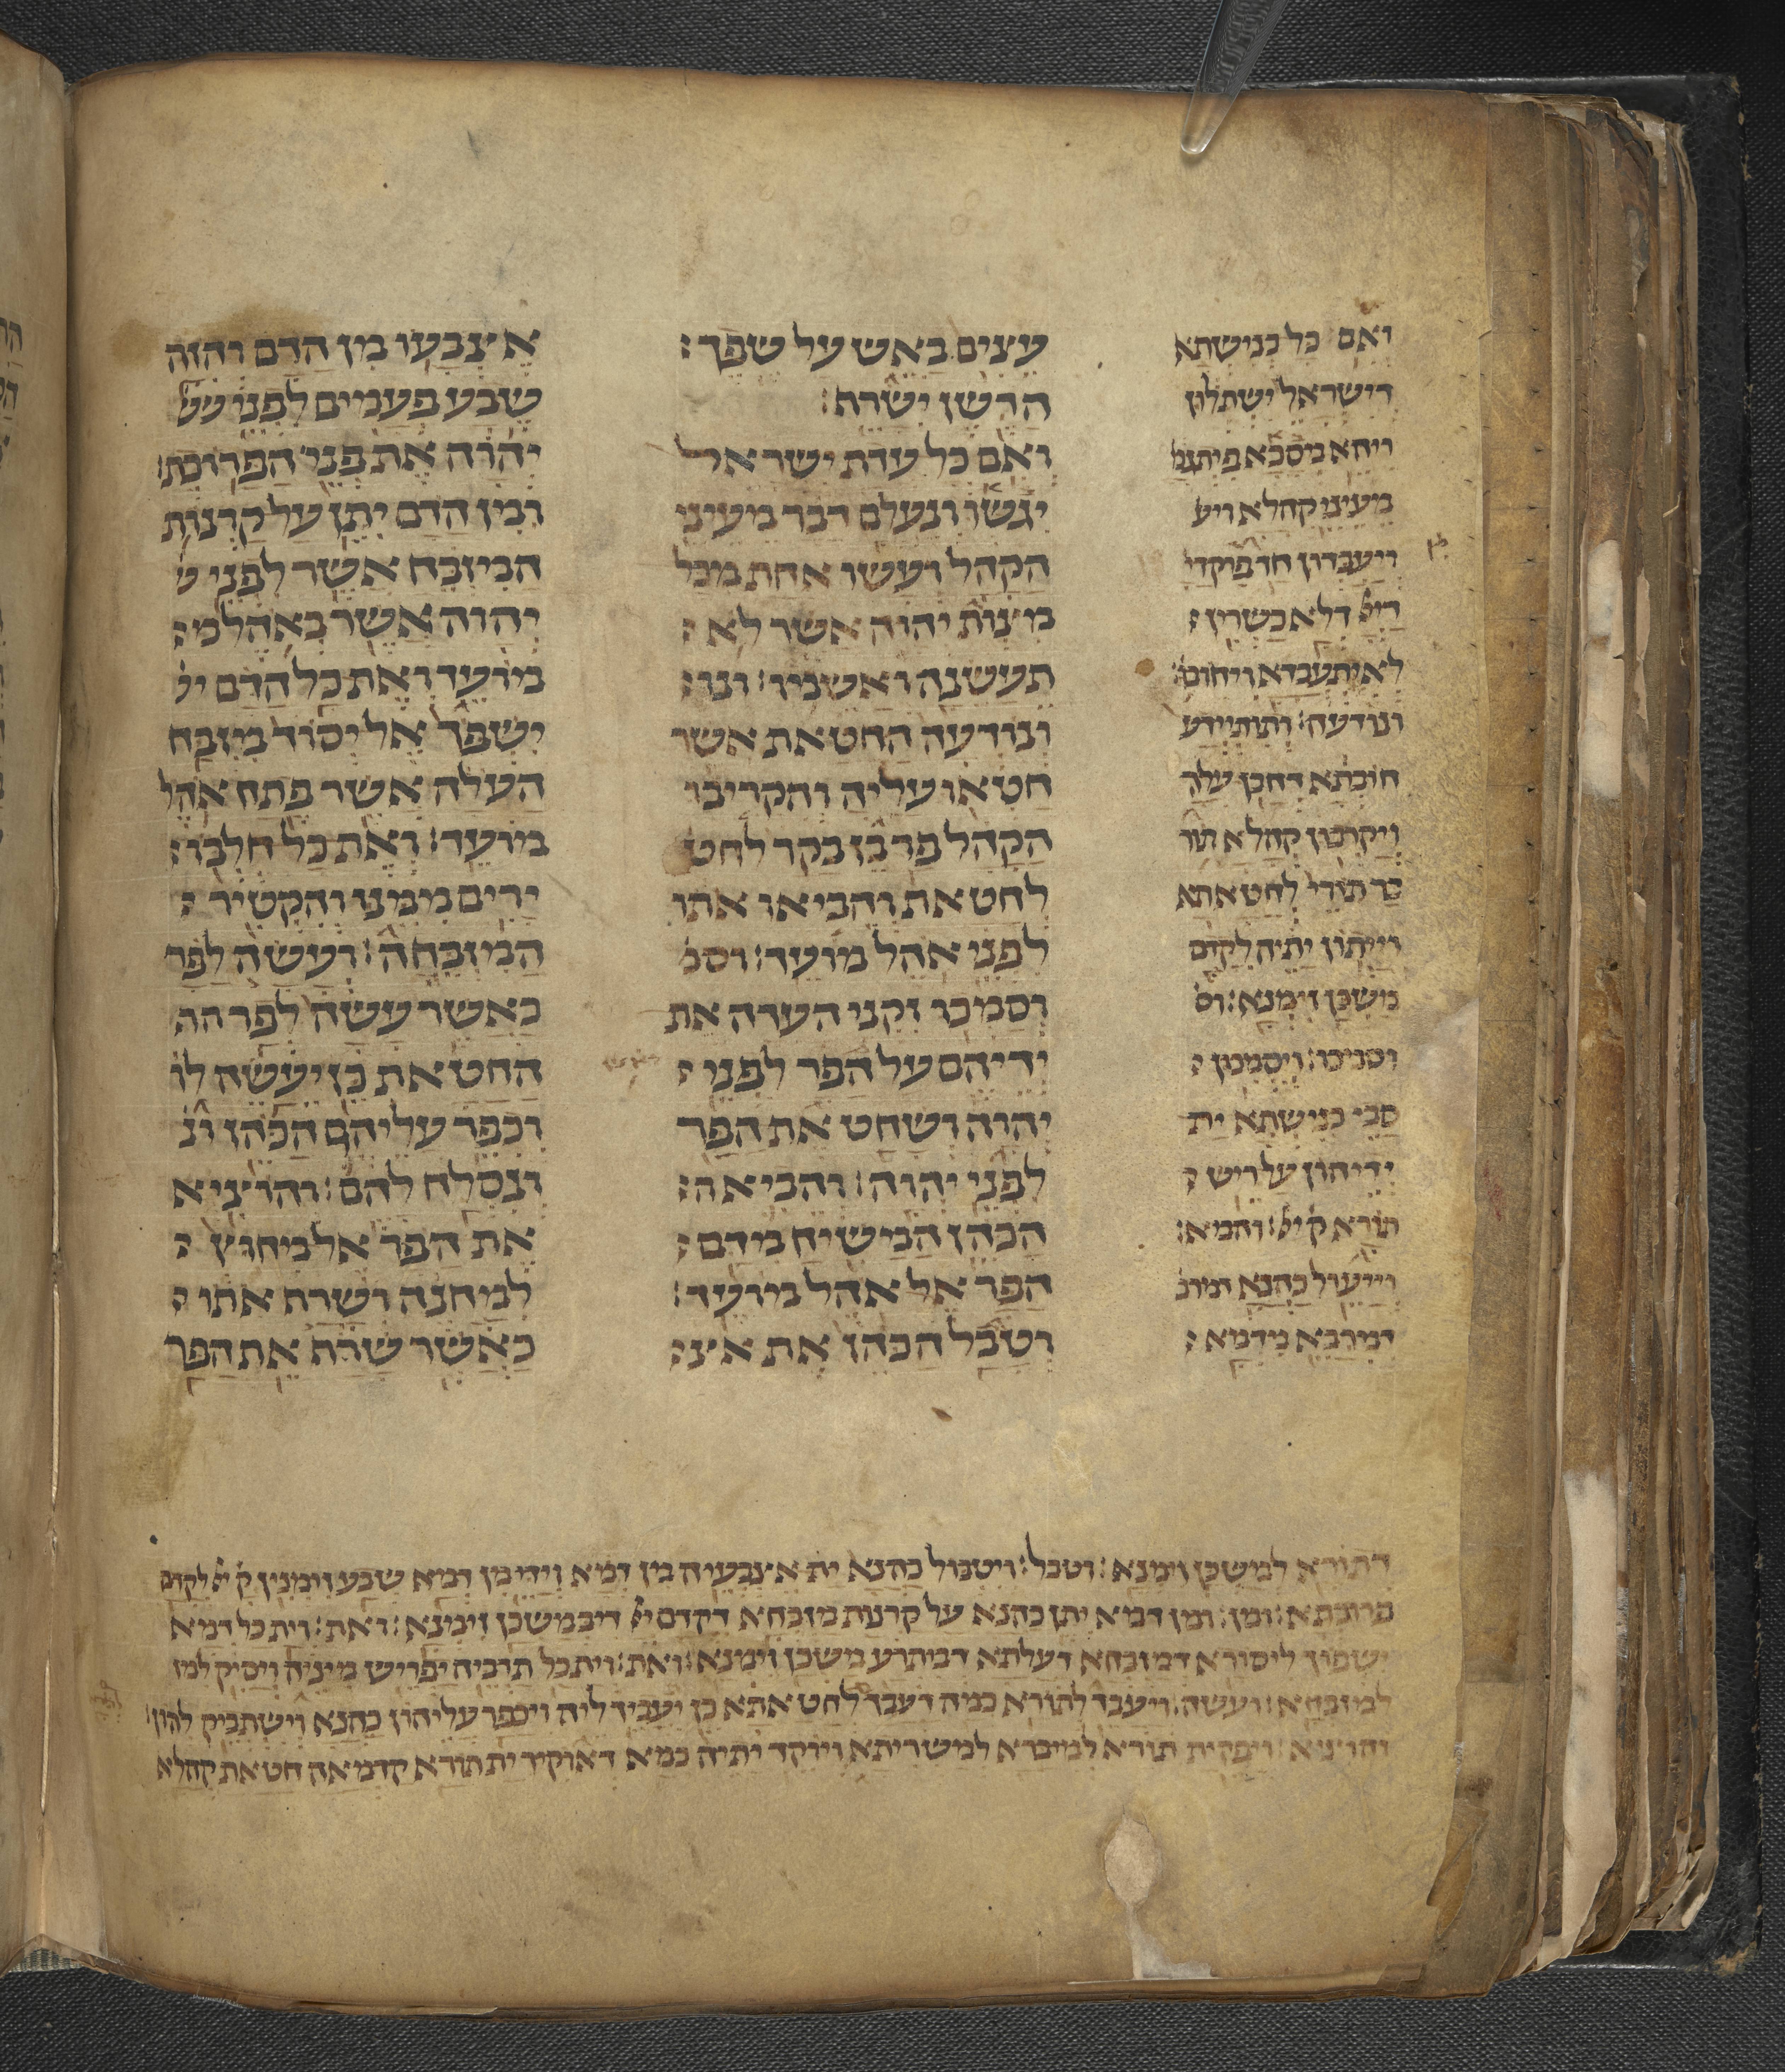 עצים באש על שפך
הדשן ישרף׃
ואם כל עדת ישראל
ישגו ונעלם דבר מעיני
הקהל ועשו אחת מכל
מצות יהוה אשר לא
תעשנה ואשמו׃ ונו
ונודעה החטאת אשר
חטאו עליה והקריבו
הקהל פר בן בקר לחט
לחטאת והביאו אתו
לפני אהל מועד׃ וסמ
וסמכו זקני העדה את
ידיהם על הפר לפני
יהוה ושחט את הפר
לפני יהוה׃ והביא ה
הכהן המשיח מדם
הפר אל אהל מועד׃
וטבל הכהן את אצ
אצבעו מן הדם והזה
שבע פעמים לפני
יהוה את פני הפרוכת׃
ומן הדם יתן על קרנות
המזבח אשר לפני
יהוה אשר באהל מ
מועד ואת כל הדם י
ישפך אל יסוד מזבח
העלה אשר פתח אהל
מועד׃ ואת כל חלבו
ירים ממנו והקטיר
המזבחה׃ ועשה לפר
כאשר עשה לפר הח
החטאת כן יעשה לו
וכפר עליהם הכהן ונ
ונסלח להם׃ והוציא
את הפר אל מחוץ
למחנה ושרף אתו
כאשר שרף את הפר
ואם כל כנישתא
דישראל ישתלון
ויהא מכסא פיתגמ
מעיני קהלא ויע
ויעבדון חד מ פקדי
דייי דלא כשרין
לאיתעבדא ויחובו׃
ונודעה׃ ותתידע
חובתא דחבו עלה
ויקרבון קהלא תור
בר תורי לחטאתא
וייתון יתיה לקדם
משכן זימנא׃ וס
וסמכו׃ ויסמכון
סבי כנישתא ית
ידיהון על ריש
תורא ק ייי׃ והביא׃
וייעול כהנא דמר
דמרבא מדמא
דתורא למשכן זימנא׃ וטבל׃ ויטבול כהנא ית אצבעיה מן דמא וידי מן דמא שבע זימנין ק ייי לקדם
פרוכתא׃ ומן׃ ומן דמא יתן כהנא על קרנות מזבחא דקדם ייי דיבמשכן זימנא׃ ואת׃ וית כל דמא
ישפוך ליסודא דמזבחא דעלתא דבתרע משכן זימנא׃ ואת׃ וית כל תרביה יפריש מיניה ויסיק למז
למזבחא׃ ועשה׃ ויעבד לתורא כמה דעבד לחטאתא כן יעביד ליה ויכפר עליהון כהנא וישתביק להון׃
והוציא׃ ויפקית תורא למיברא למשריתא ויוקד יתיה כמא דאוקיד ית תורא קדמאה חטאת קהלא